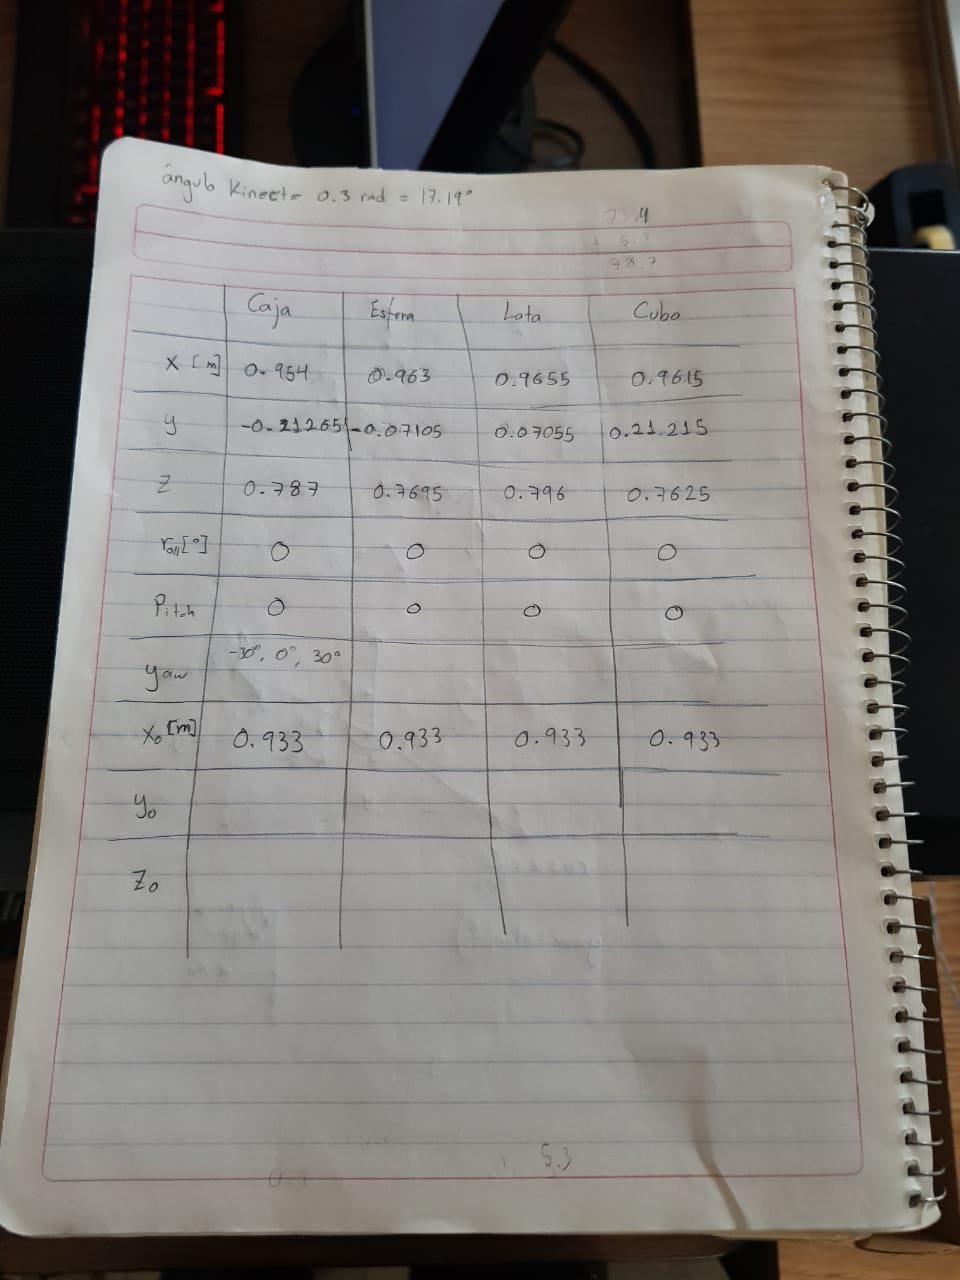 ángulo Kinect = 0.3 rad = 17.19°
73.4
+ 5.3
78.7
Caja Esfera Lata Cubo
X [m] 0.954 0.963 0.9655 0.9615
y -0.21265 -0.07105 0.07055 0.21215
Z 0.787 0.7695 0.796 0.7625
roll[°] 0 0 0 0
Pitch 0 0 0 0
yaw -30°, 0°, 30°
X₀ [m] 0.933 0.933 0.933 0.933
y₀
Z₀
5.3